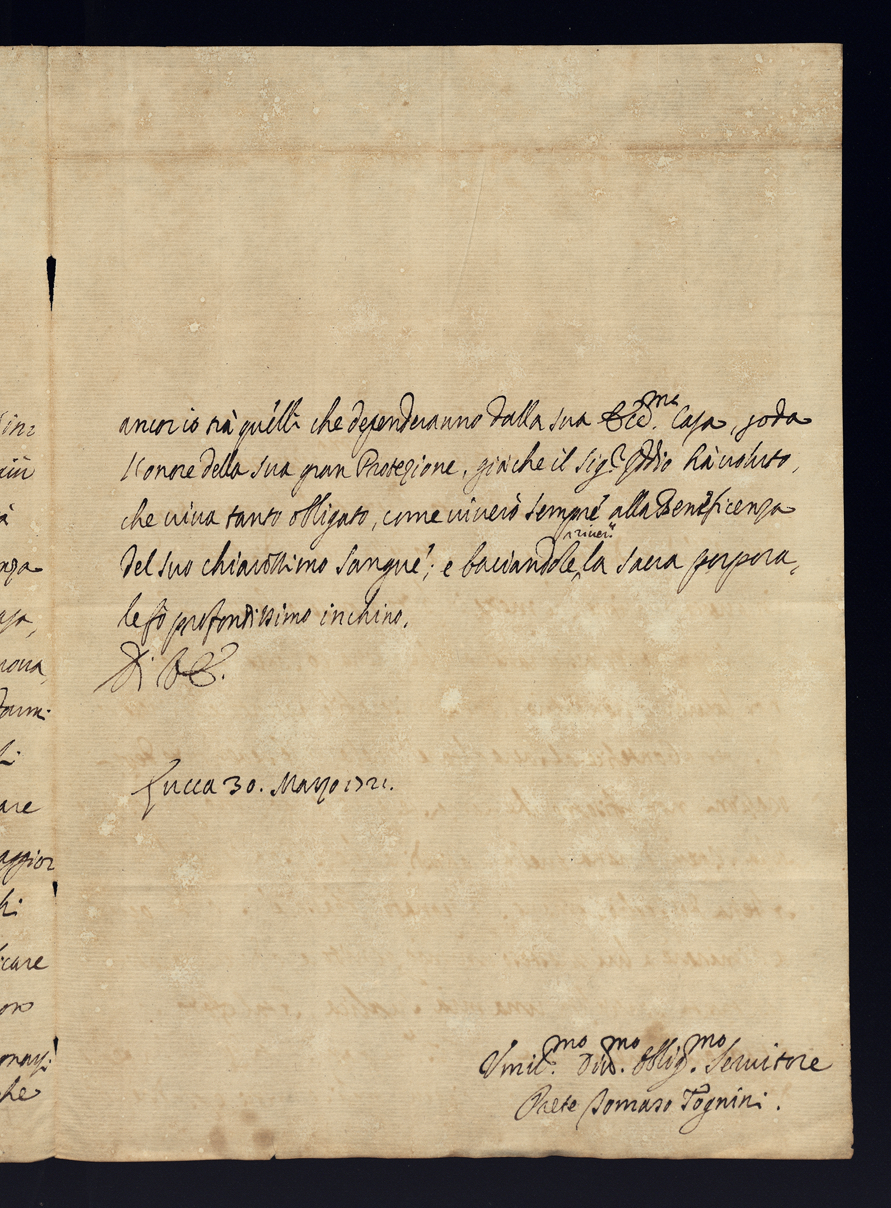 ancor io trà quélli che dependeranno dalla sua Ecc.ma Casa, goda
l'onore della sua gran Protezione, già che il Sig.re Iddio hà voluto,
che viva tanto obbligato, come viverò sempre alla Beneficenza
del suo chiarissimo Sangue; e baciandole la sacra porpora,
le fò profondissimo inchino.
Di V.E.
Lucca 30. Marzo 1721.
Umil.mo Div.mo Oblig.mo Servitore
Prete Tomaso Tognini.
are
care
che